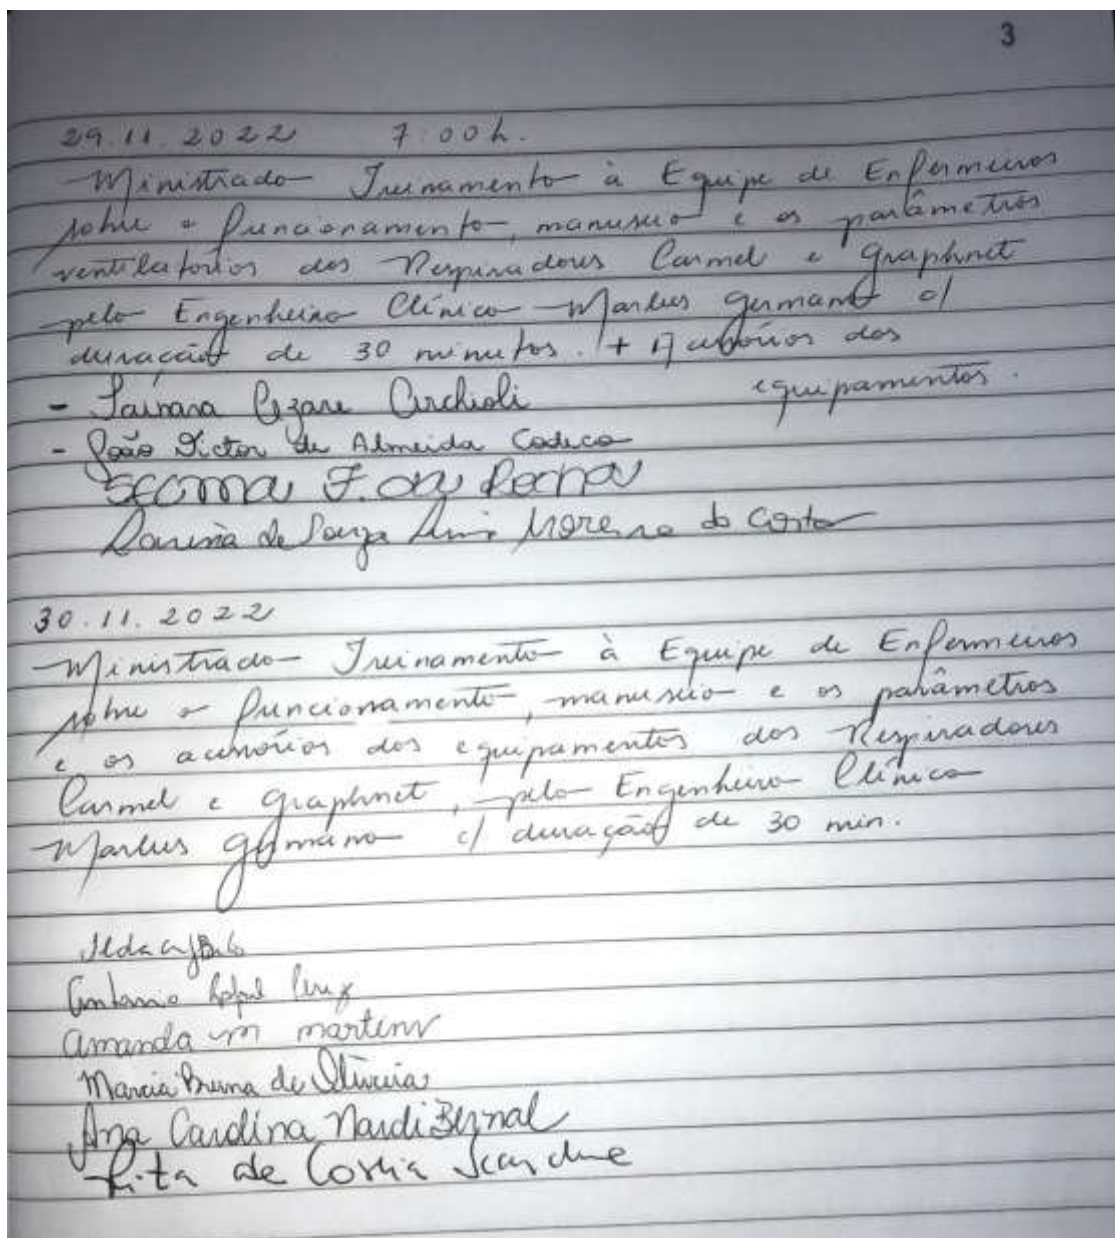 3
29.11.2022 7:00h.
Ministrado Treinamento à Equipe de Enfermeiros
sobre o funcionamento, manuseio e os parâmetros
ventilatórios dos Respiradores Carmel e Graphnet
pelo Engenheiro Clínico Marlus Germano c/
duração de 30 minutos. + Acessórios dos
equipamentos.
- Tainara Cezare
- João Victor de Almeida Codeco
F. da Rocha
de Souza Moreira da Costa
30.11.2022
Ministrado Treinamento à Equipe de Enfermeiros
sobre o funcionamento, manuseio e os parâmetros
e os acessórios dos equipamentos dos Respiradores
Carmel e Graphnet, pelo Engenheiro Clínico
Marlus Germano c/ duração de 30 min.
Antonio
Amanda M Martens
Marcia Bruna de Oliveira
Ana Carolina Nardi Bernal
Rita de Cassia